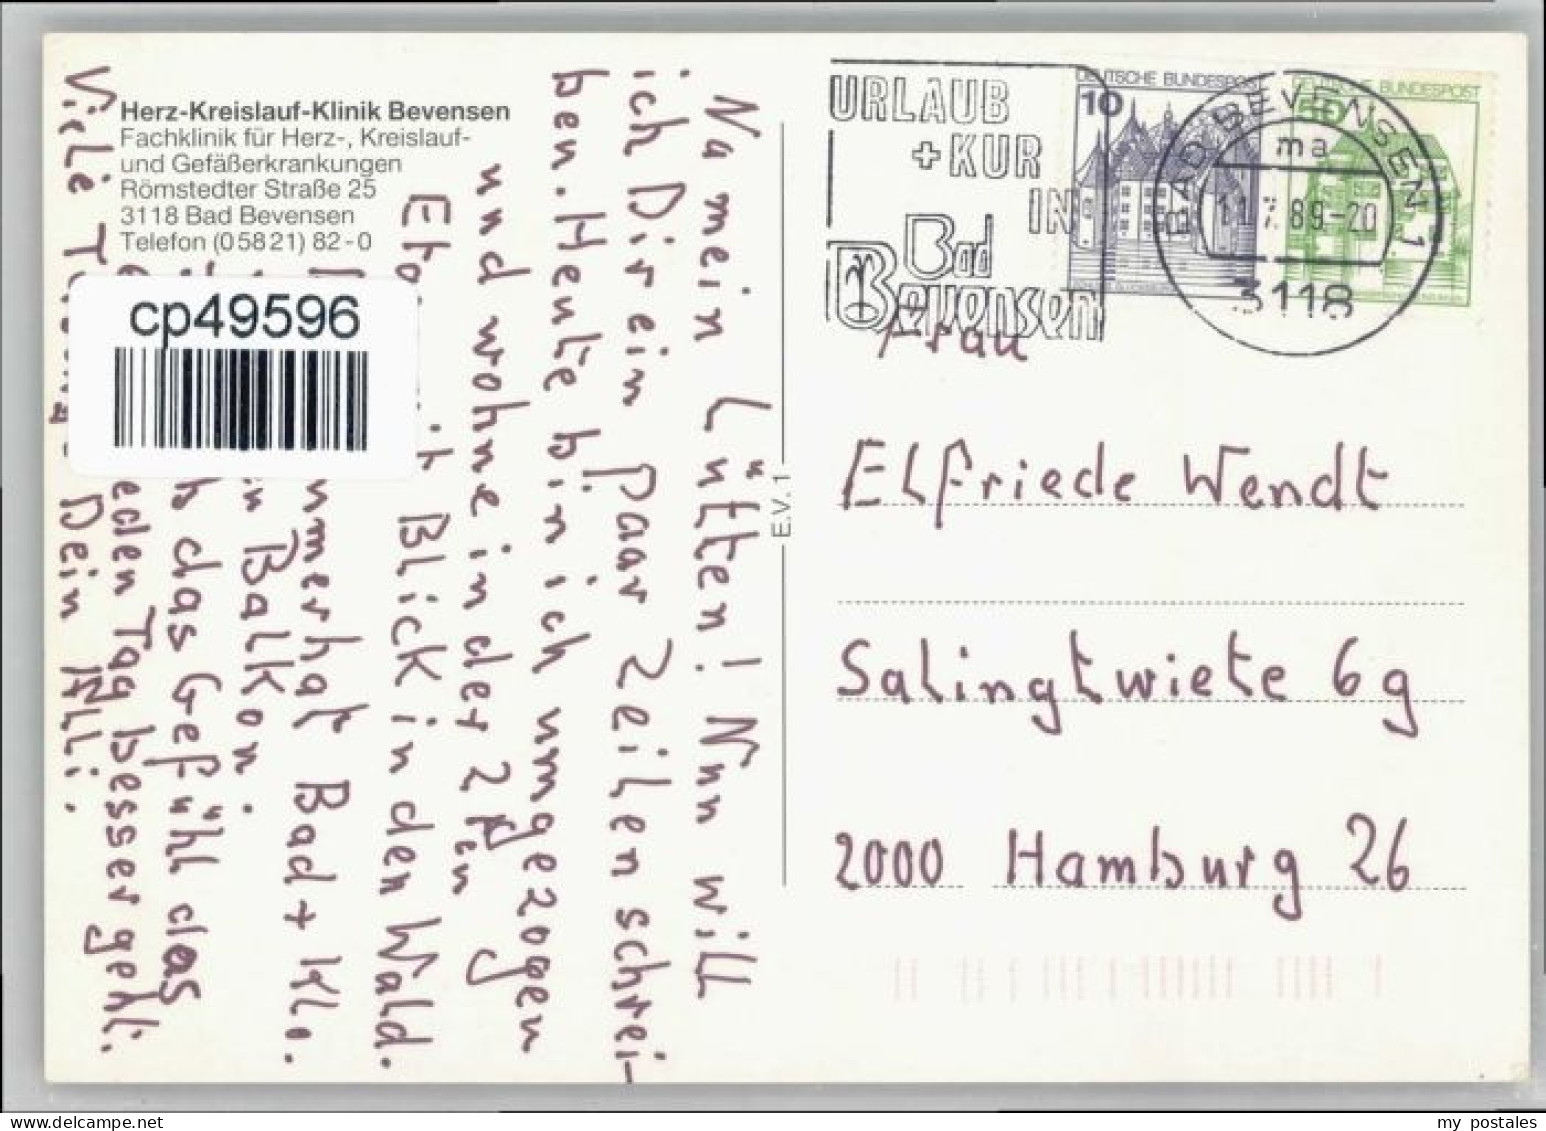 Herz-Kreislauf-Klinik Bevensen
Fachklinik für Herz-, Kreislauf-
und Gefäßerkrankungen
Römstedter Straße 25
3118 Bad Bevensen
Telefon (0 58 21) 82-0
cp49596
Na mein Lütten! Nun will
ich Dir ein paar Zeilen schrei-
ben. Heute bin ich umgezogen
und wohne in der 2ten
Blick in den Wald.
hat Bad + Klo.
Balkon.
das Gefühl das
eden Tag besser geht.
Viele Dein Alli.
E.V. 1
URLAUB
+ KUR
IN
Bad
Bevensen
DEUTSCHE BUNDESPOST
10
50
DEUTSCHE BUNDESPOST
BAD BEVENSEN 1
ma
11.7.89-20
3118
Frau
Elfriede Wendt
Salingtwiete 6g
2000 Hamburg 26
www.delcampe.net
my_postales